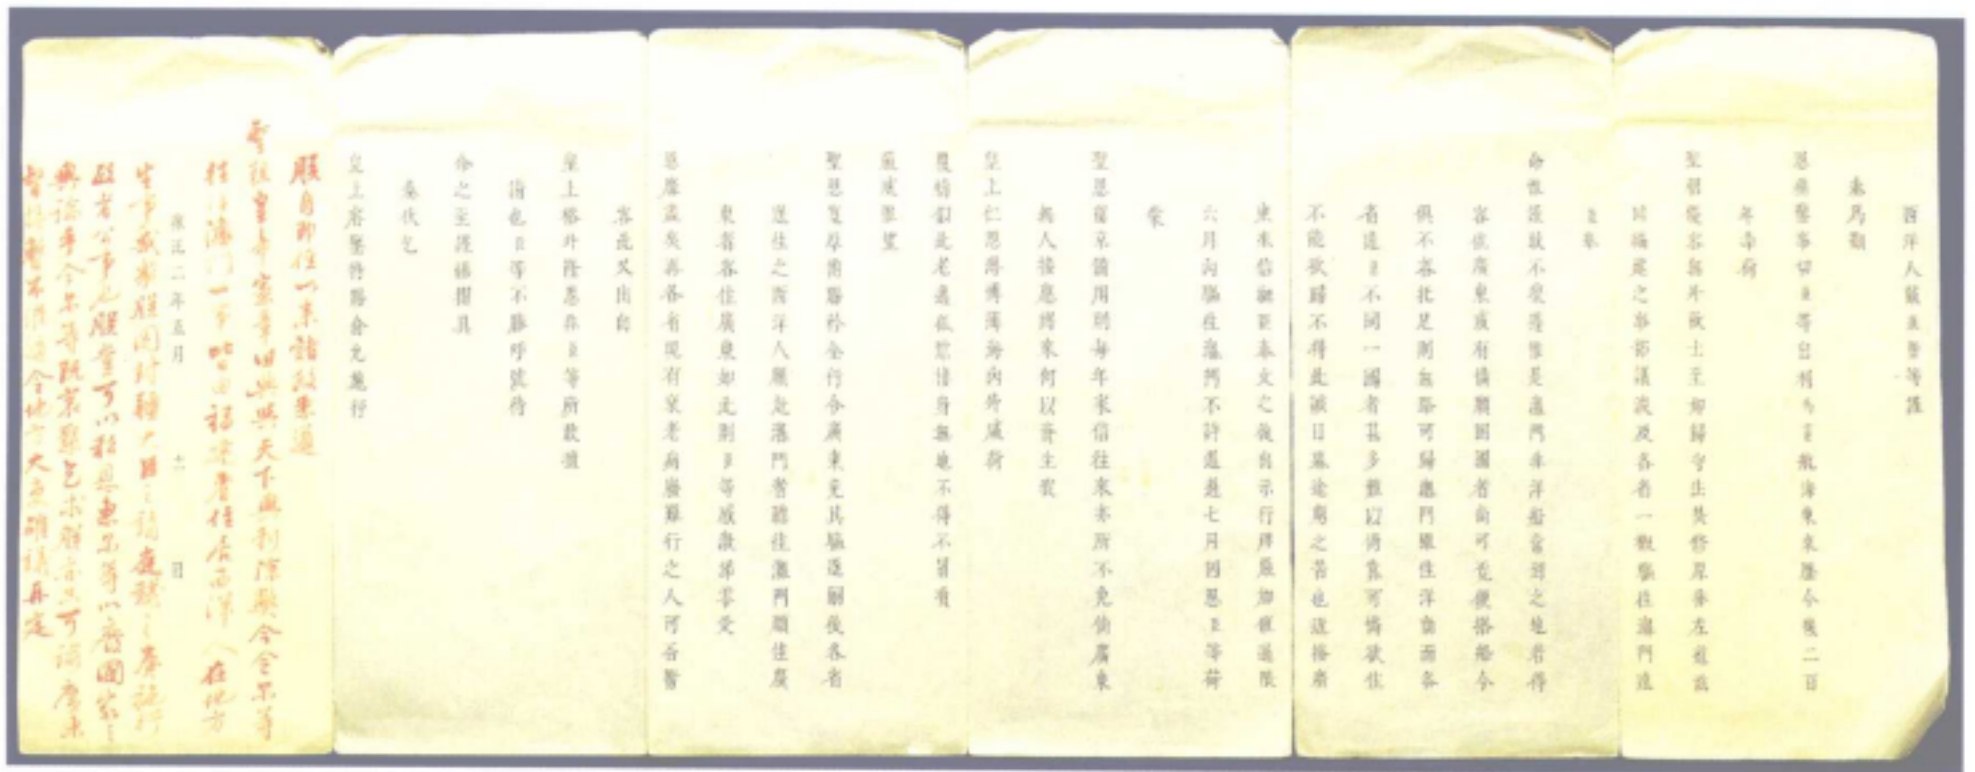 西洋人戴進賢等謹
奏為籲
恩垂鑒事切臣等自利瑪竇航海東來歷今幾二百
年幸荷
聖朝優容無外故士至如歸守法焚修原非左道祇
因福建之事部議波及各省一概驅往澳門遠
臣奉
命惟謹敢不遵依惟是澳門非洋船常到之地若得
容住廣東或有情願回國者尚可覓便搭船今
俱不容托足則無路可歸澳門雖住洋商而各
省遠臣不同一國者甚多難以倚靠可憐欲住
不能欲歸不得此誠日暮途窮之苦也近接廣
東來信知臣奉文之後出示行牌嚴加催逼限
六月內驅往澳門不許遲過七月因思臣等荷
蒙
聖恩留京備用則每年家信往來亦所不免倘廣東
無人接應將來何以資生哉
皇上仁恩溥博薄海內外咸荷
覆幬如此老邁孤惸棲身無地不得不冒瀆
嚴威惟望
聖恩寬厚俯賜矜全行令廣東免其驅逐嗣後各省
送往之西洋人願赴澳門者聽往澳門願住廣
東者容住廣東如此則臣等感激涕零受
恩靡盡矣再各省現有衰老病廢難行之人可否暫
容
皇上格外隆恩非臣等所敢瀆
請也臣等不勝呼號待
命之至謹繕摺具
奏伏乞
皇上睿鑒特賜俞允施行
雍正二年五月十一日
朕自即位以來諸政悉遵
聖祖皇帝憲章舊典與天下興利除弊今令爾等
往住澳門一事皆由福建省住居西洋人在地方
生事惑眾朕因封疆大臣之請庭議之奏施行
政者公事也朕豈可以私恩惠爾等以廢國家之
輿論乎今爾等既哀懇乞求朕亦只可諭廣東
督撫暫不催逼令地方大吏確議再定